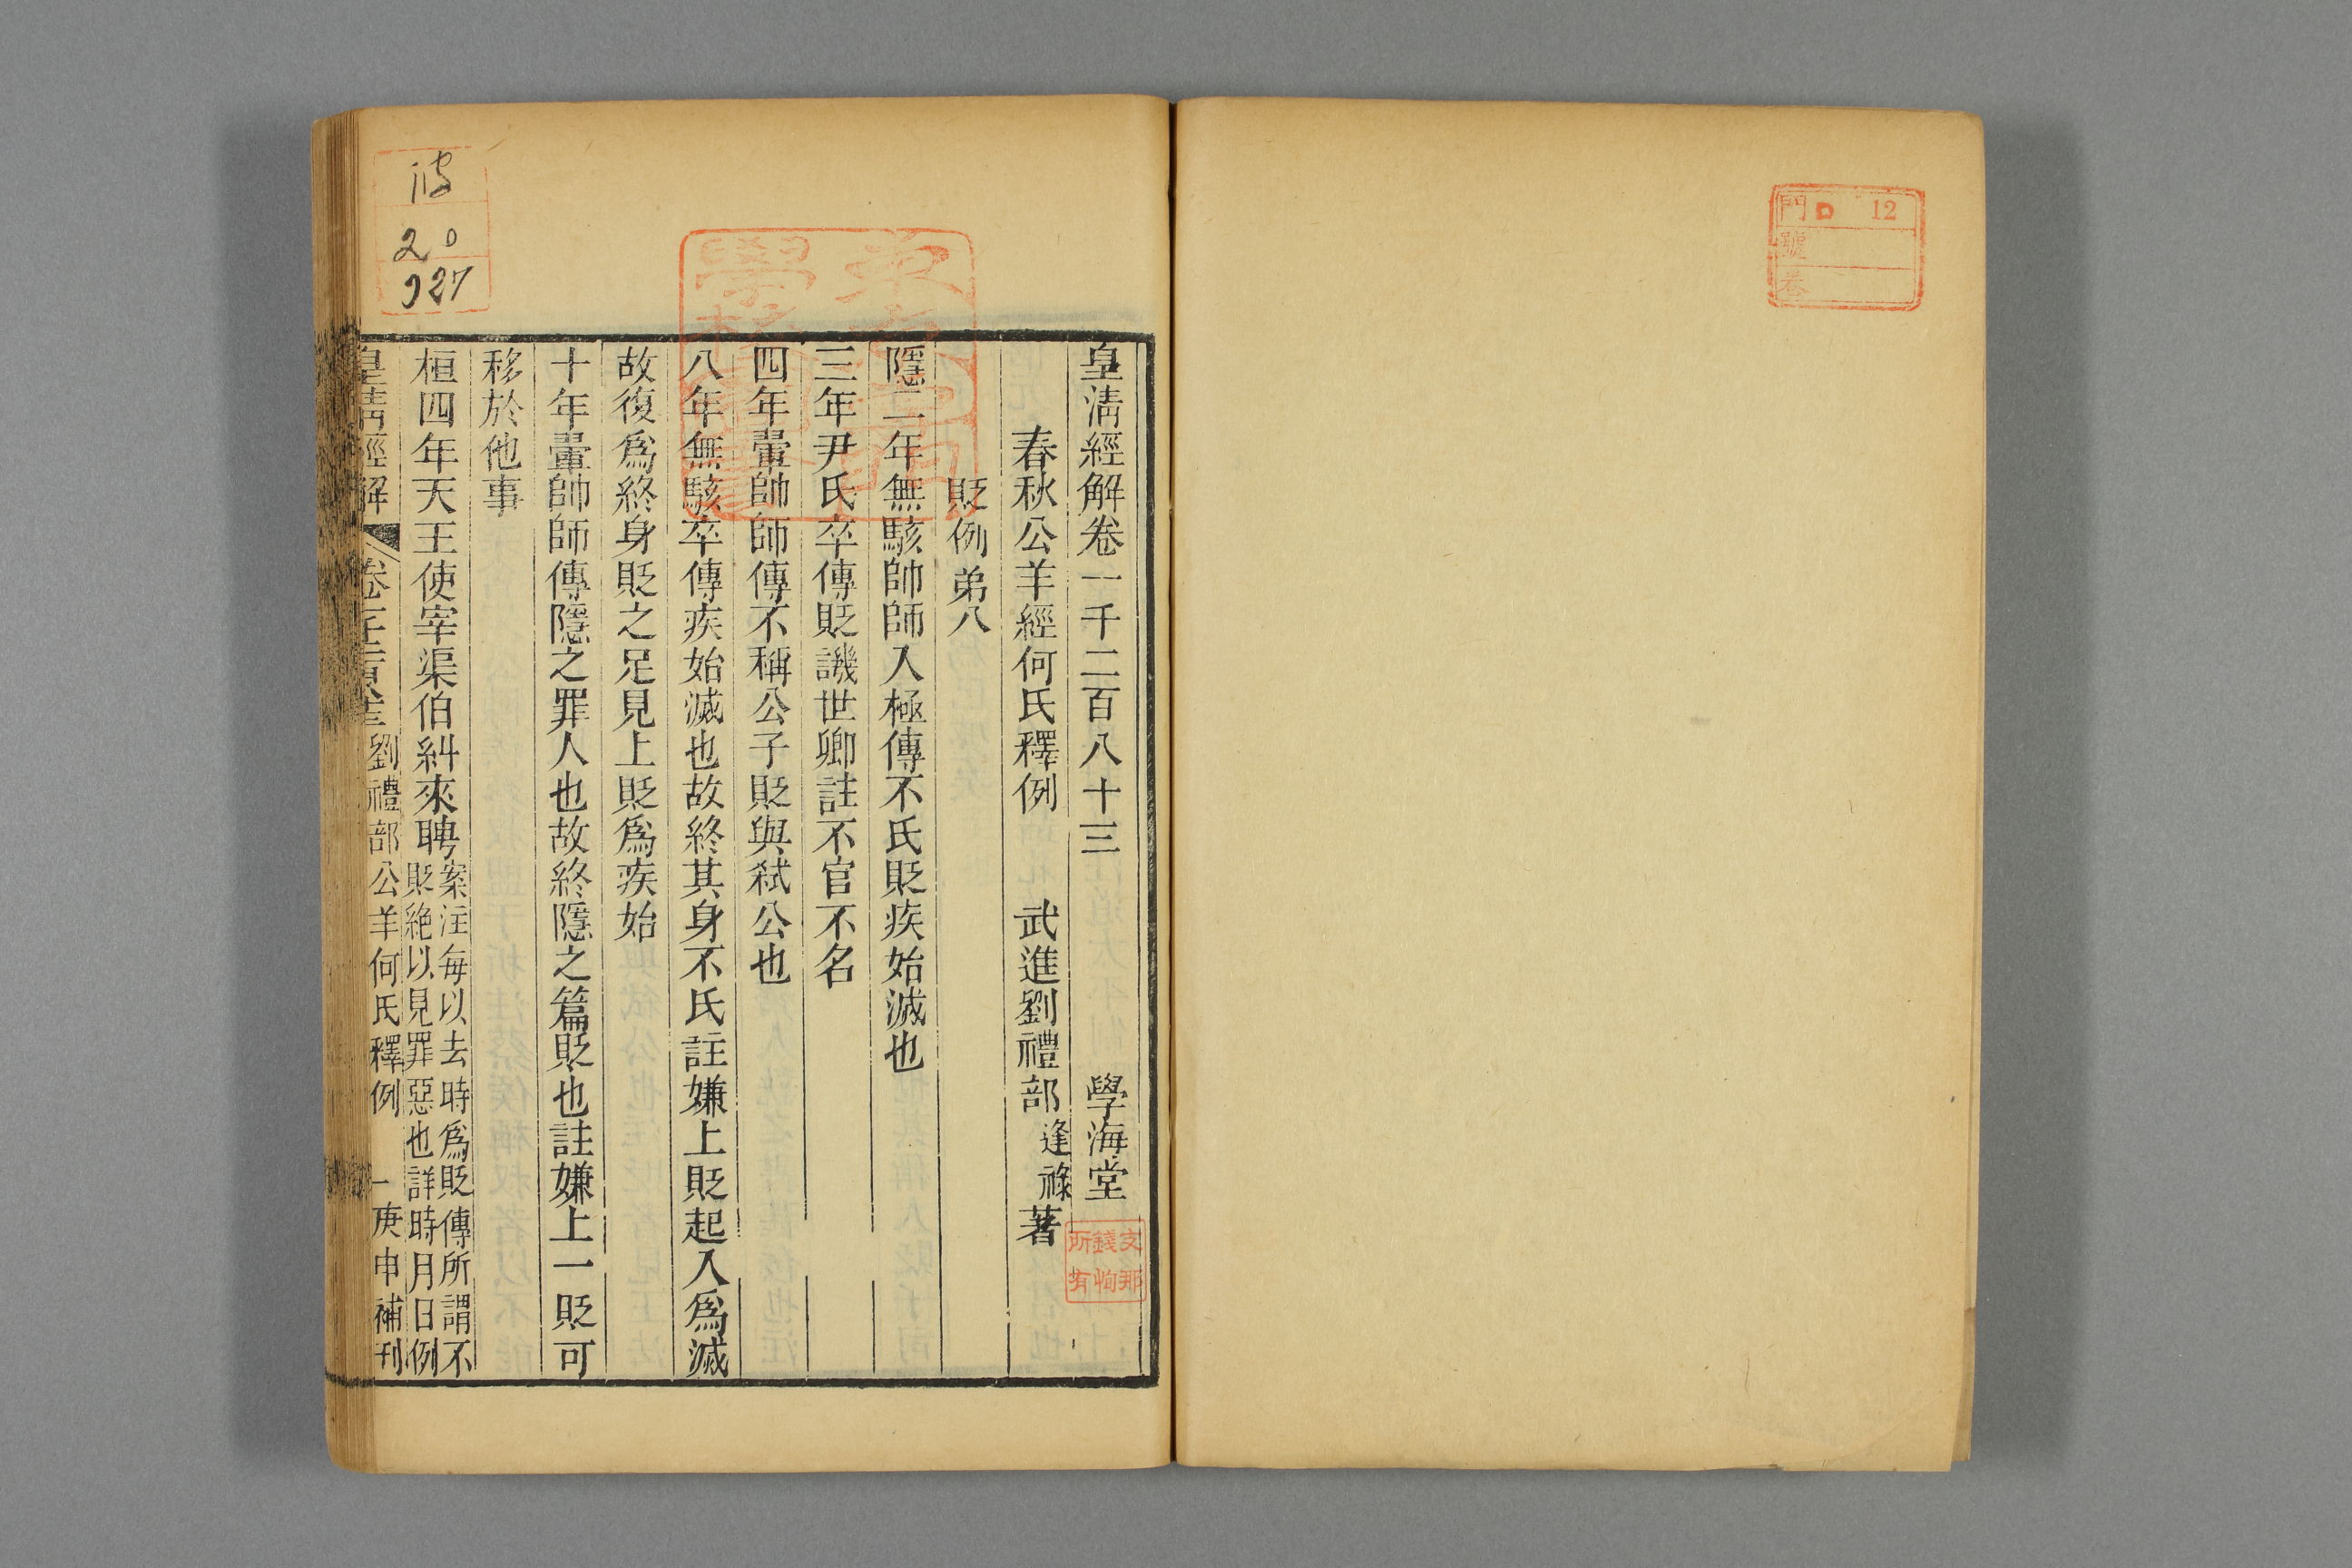 門 D 12
號
卷
皇清經解卷一千二百八十三 學海堂
春秋公羊經何氏釋例 武進劉禮部逢祿著
貶例弟八
隱二年無駭帥師入極傳不氏貶疾始滅也
三年尹氏卒傳貶譏世卿註不官不名
四年翬帥師傳不稱公子貶與弒公也
八年無駭卒傳疾始滅也故終其身不氏註嫌上貶起入爲滅
故復爲終身貶之足見上貶爲疾始
十年翬帥師傳隱之罪人也故終隱之篇貶也註嫌上一貶可
移於他事
桓四年天王使宰渠伯糾來聘
案注每以去時爲貶傳所謂不
貶絶以見罪惡也詳時月日例
皇清經解 劉禮部公羊何氏釋例 一 庚申補刊
文那
錢恂
所有
20
927